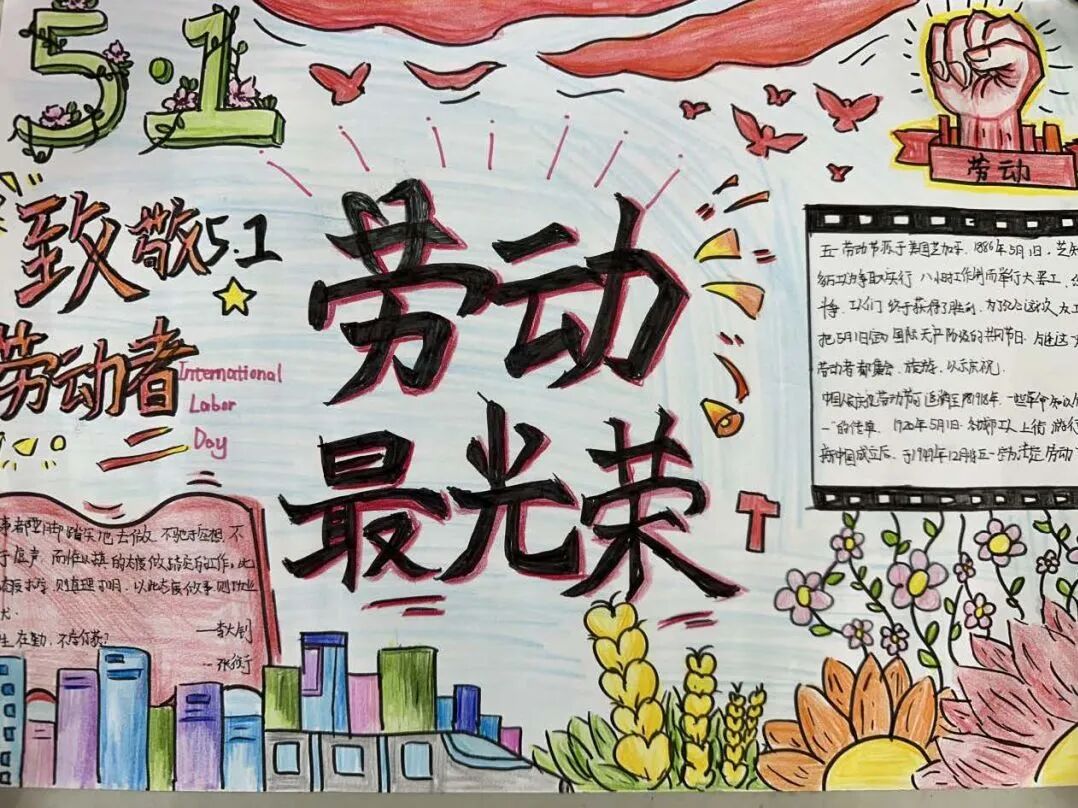 5·1
致敬5.1
劳动者
International
Labor
Day
劳动
最光荣
劳动
五一劳动节源于美国芝加哥，1886年5月1日，芝
实行八小时工作制而举行大罢工，
工人们终于获得了胜利，为纪念这次
把5月1日定为国际无产阶级的共同节日，
劳动者都集会、游行，以示庆祝。
中国人民庆祝劳动节可追溯至1918年，一些革命知识
一"的传单，1920年5月1日，工人上街游行
新中国成立后，于1949年12月将五一定为法定劳动
事都要脚踏实地去做，不驰于空想，不
于虚声，而惟以求真的态度做踏实的工作。以此
态度求学，则真理可明，以此态度做事，则功业
——李大钊
生在勤，不索何获？
——张衡